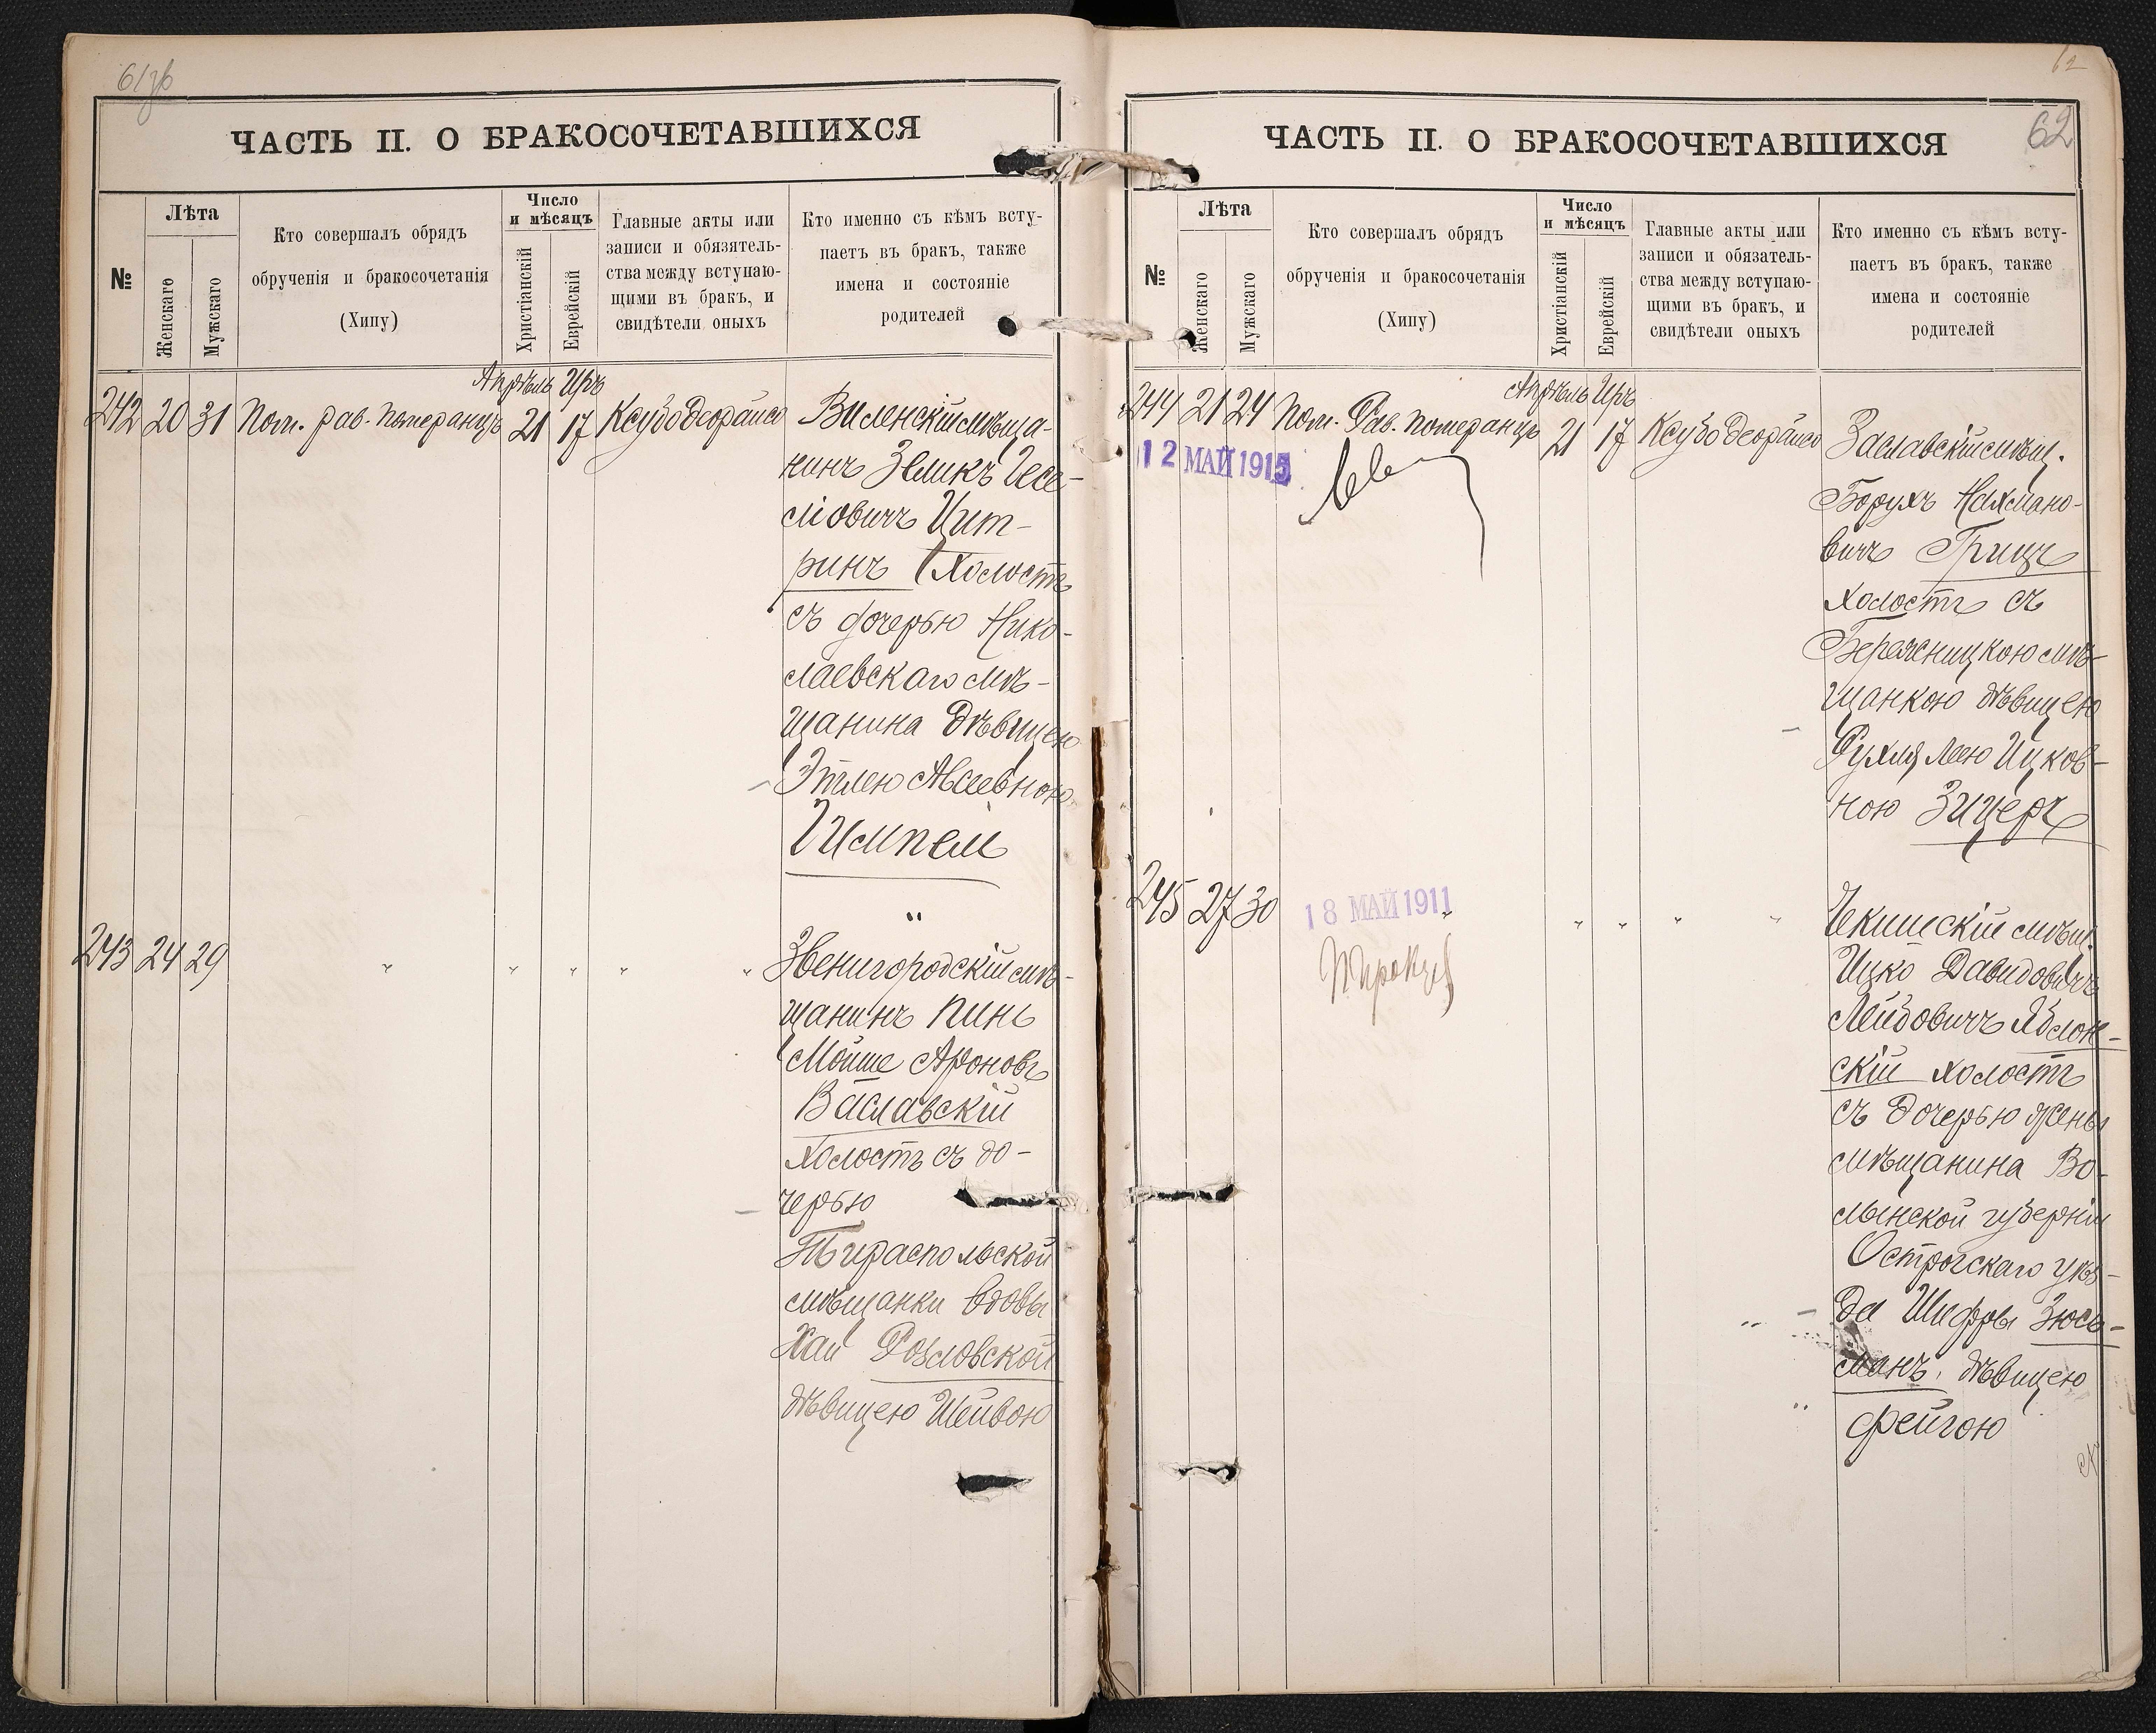 61зв
ЧАСТЬ II. О БРАКОСОЧЕТАВШИХСЯ
№
Лѣта
Женскаго
Мужскаго
Кто совершалъ обрядъ
обрученія и бракосочетанія
(Хипу)
Число
и мѣсяцъ
Христіанскій
Еврейскій
Главные акты или
записи и обязятель-
ства между вступаю-
щими въ бракъ, и
свидѣтели оныхъ
Кто именно съ кѣмъ всту-
паетъ въ бракъ, также
имена и состояніе
родителей
Апрѣль Иръ
242 20 31 Пом. рав. Померанцъ 21 17 Ксубо Деорайсо
Виленскій мѣща-
нинъ Зеликъ Iосе-
ліовичъ Цит-
ринъ холостъ
съ дочерью Нико-
лаевскаго мѣ-
щанина дѣвицею
Этлею Авсеевною
Гимпель
"
243 24 29 " " " " "
Звенигородскій мѣ-
щанинъ Пинь
Мойше Ароновъ
Ваславскій
холостъ съ до-
черью
Тираспольской
мѣщанки вдовы
Хаи Розловской
дѣвицею Шейвою
62
62
ЧАСТЬ II. О БРАКОСОЧЕТАВШИХСЯ
№
Лѣта
Женскаго
Мужскаго
Кто совершалъ обрядъ
обрученія и бракосочетанія
(Хипу)
Число
и мѣсяцъ
Христіанскій
Еврейскій
Главные акты или
записи и обязатель-
ства между вступаю-
щими въ бракъ, и
свидѣтели оныхъ
Кто именно съ кѣмъ всту-
паетъ въ бракъ, также
имена и состояніе
родителей
Апрѣль Иръ
244 21 24 Пом. Рав. Померанцъ 21 17 Ксубо Деорайсо
12 МАЙ 1915
Заславскій мѣщ.
Борухъ Нахмано-
вичъ Грицъ
холостъ съ
Бережницкою мѣ-
щанкою дѣвицею
Рухля Леею Ицков-
ною Зицеръ
245 27 30 " " " " "
18 МАЙ 1911
Чекишскій мѣщ.
Ицко Давидовичъ
Лейбовичъ Яблон-
скій холостъ
съ дочерью жены
мѣщанина Во-
лынской губерніи
Острогскаго уѣз-
да Шифры Зюсь-
манъ, дѣвицею
Фейгою